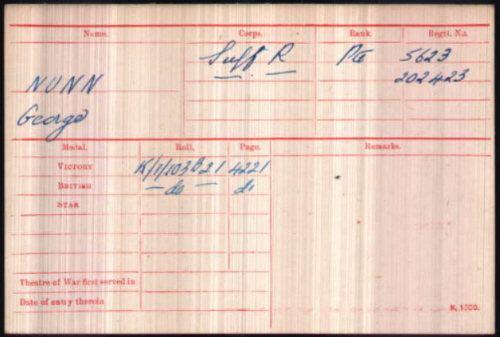 Name. Corps. Rank Regtl. No.
NUNN Suff R Pte 5623
George 202423
Medal. Roll. Page. Remarks.
VICTORY K/1/103B21 4221
BRITISH —do— do
STAR
Theatre of War first served in
Date of entry therein
K. 1380.